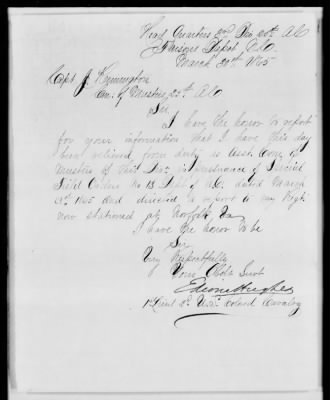 Head Quarters 2nd Div 25th A.C.
March 20th 1865
Capt J. Remington
Com. of Musters 25th A.C.
Sir
I have the honor to report
for your information that I have this day
been relieved from duty as Asst. Com. of
Musters of this Div. in pursuance of Special
Field Orders No 13 Dept of N.C. dated March
1865 and directed to report to my Regt
now stationed at Norfolk, Va
I have the honor to be
Sir
Very Respectfully
Your Obdt Servt
Hughes
1st Lieut 2d U.S. Colored Cavalry